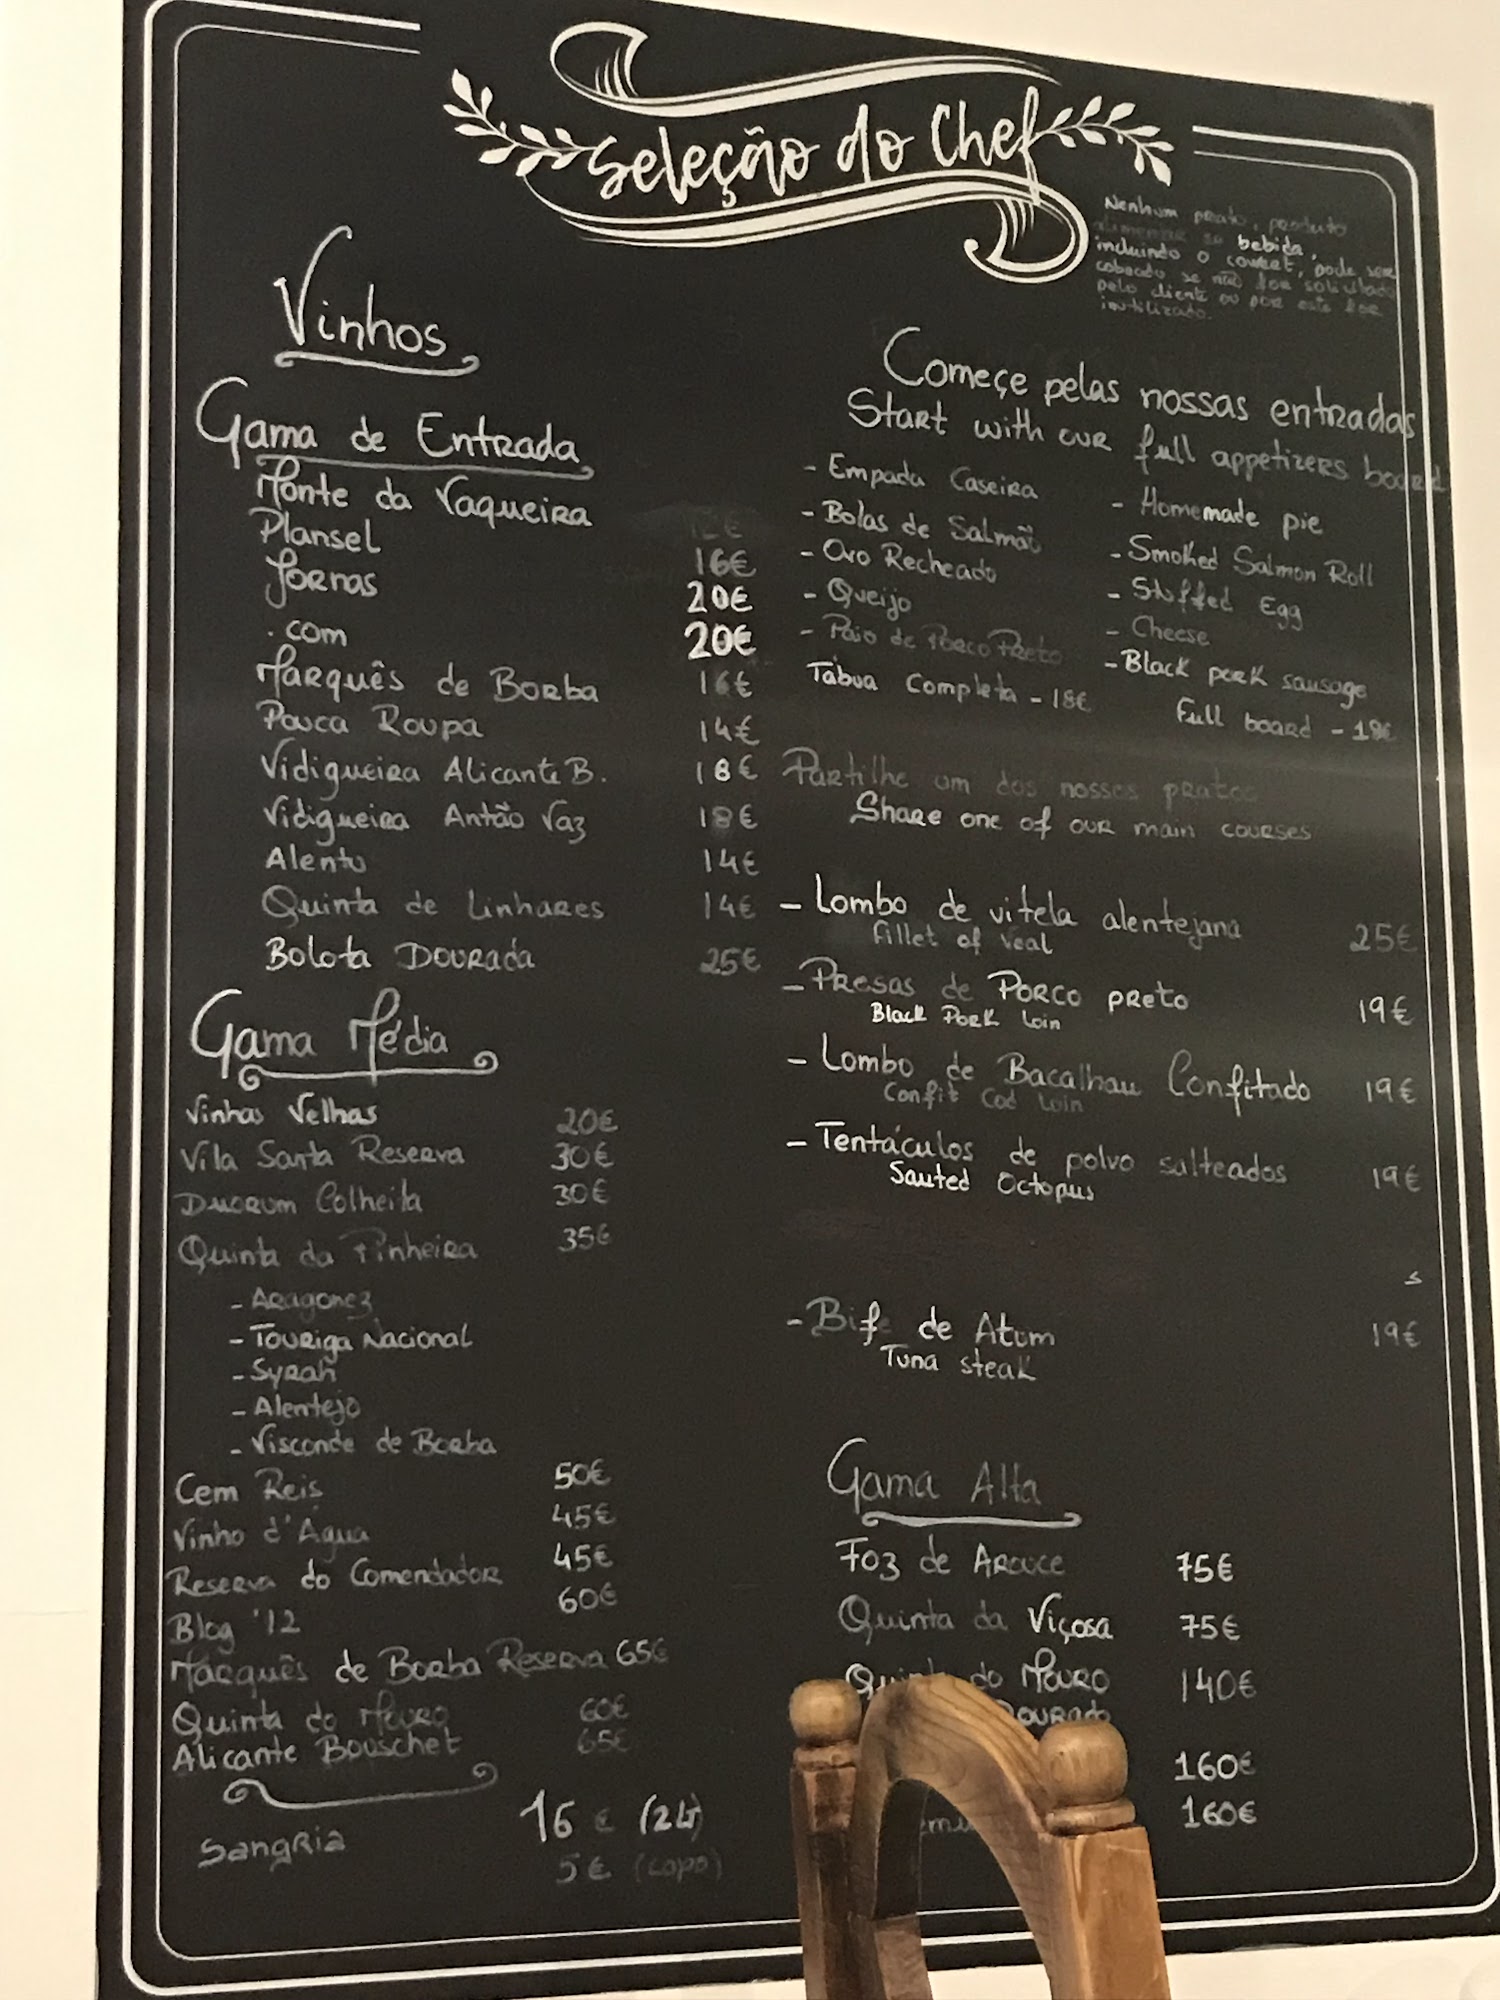 Seleção do Chef
Nenhum prato, produto
alimentar ou bebida,
incluindo o couvert, pode ser
cobrado se não for solicitado
pelo cliente ou por este for
inutilizado.
Vinhos
Gama de Entrada
Monte da Vaqueira 12€
Plansel 16€
Jornas 20€
.com 20€
Marquês de Borba 16€
Pouca Roupa 14€
Vidigueira Alicante B. 18€
Vidigueira Antão Vaz 18€
Alento 14€
Quinta de Linhares 14€
Bolota Dourada 25€
Gama Média
Vinhas Velhas 20€
Vila Santa Reserva 30€
Duorum Colheita 30€
Quinta da Pinheira 35€
- Aragonez
- Touriga Nacional
- Syrah
- Alentejo
- Visconde de Borba
Cem Reis 50€
Vinho d'Água 45€
Reserva do Comendador 45€
Blog '12 60€
Marquês de Borba Reserva 65€
Quinta do Mouro 60€
Alicante Bouschet 65€
Sangria 16€ (2L)
5€ (copo)
Começe pelas nossas entradas
Start with our full appetizers board
- Empada Caseira
- Bolas de Salmão
- Ovo Recheado
- Queijo
- Paio de Porco Preto
Tábua Completa - 18€
- Homemade pie
- Smoked Salmon Roll
- Stuffed Egg
- Cheese
- Black pork sausage
Full board - 18€
Partilhe um dos nossos pratos
Share one of our main courses
- Lombo de vitela alentejana 25€
Fillet of Veal
- Presas de Porco preto 19€
Black Pork Loin
- Lombo de Bacalhau Confitado 19€
Confit Cod Loin
- Tentáculos de polvo salteados 19€
Sauted Octopus
s
- Bife de Atum 19€
Tuna steak
Gama Alta
Foz de Arouce 75€
Quinta da Viçosa 75€
Quinta do Mouro 140€
160€
160€